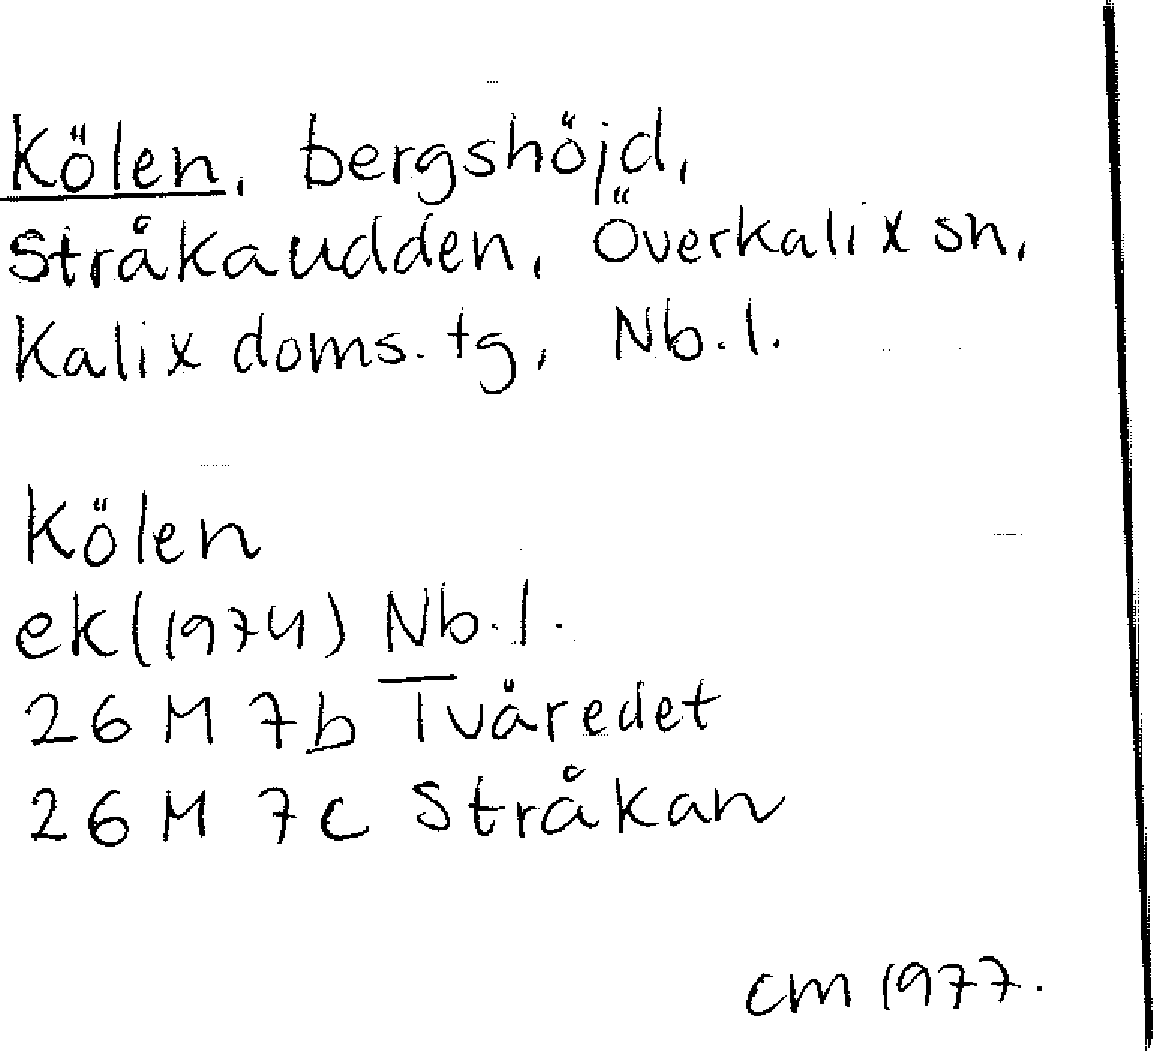 Kölen, bergshöjd,
Stråkaudden, Överkalix sn,
Kalix doms. tg, Nb. l.
Kölen
ek (1974) Nb. l.
26 M 7b Tväredet
26 M 7c Stråkan
cm 1977.